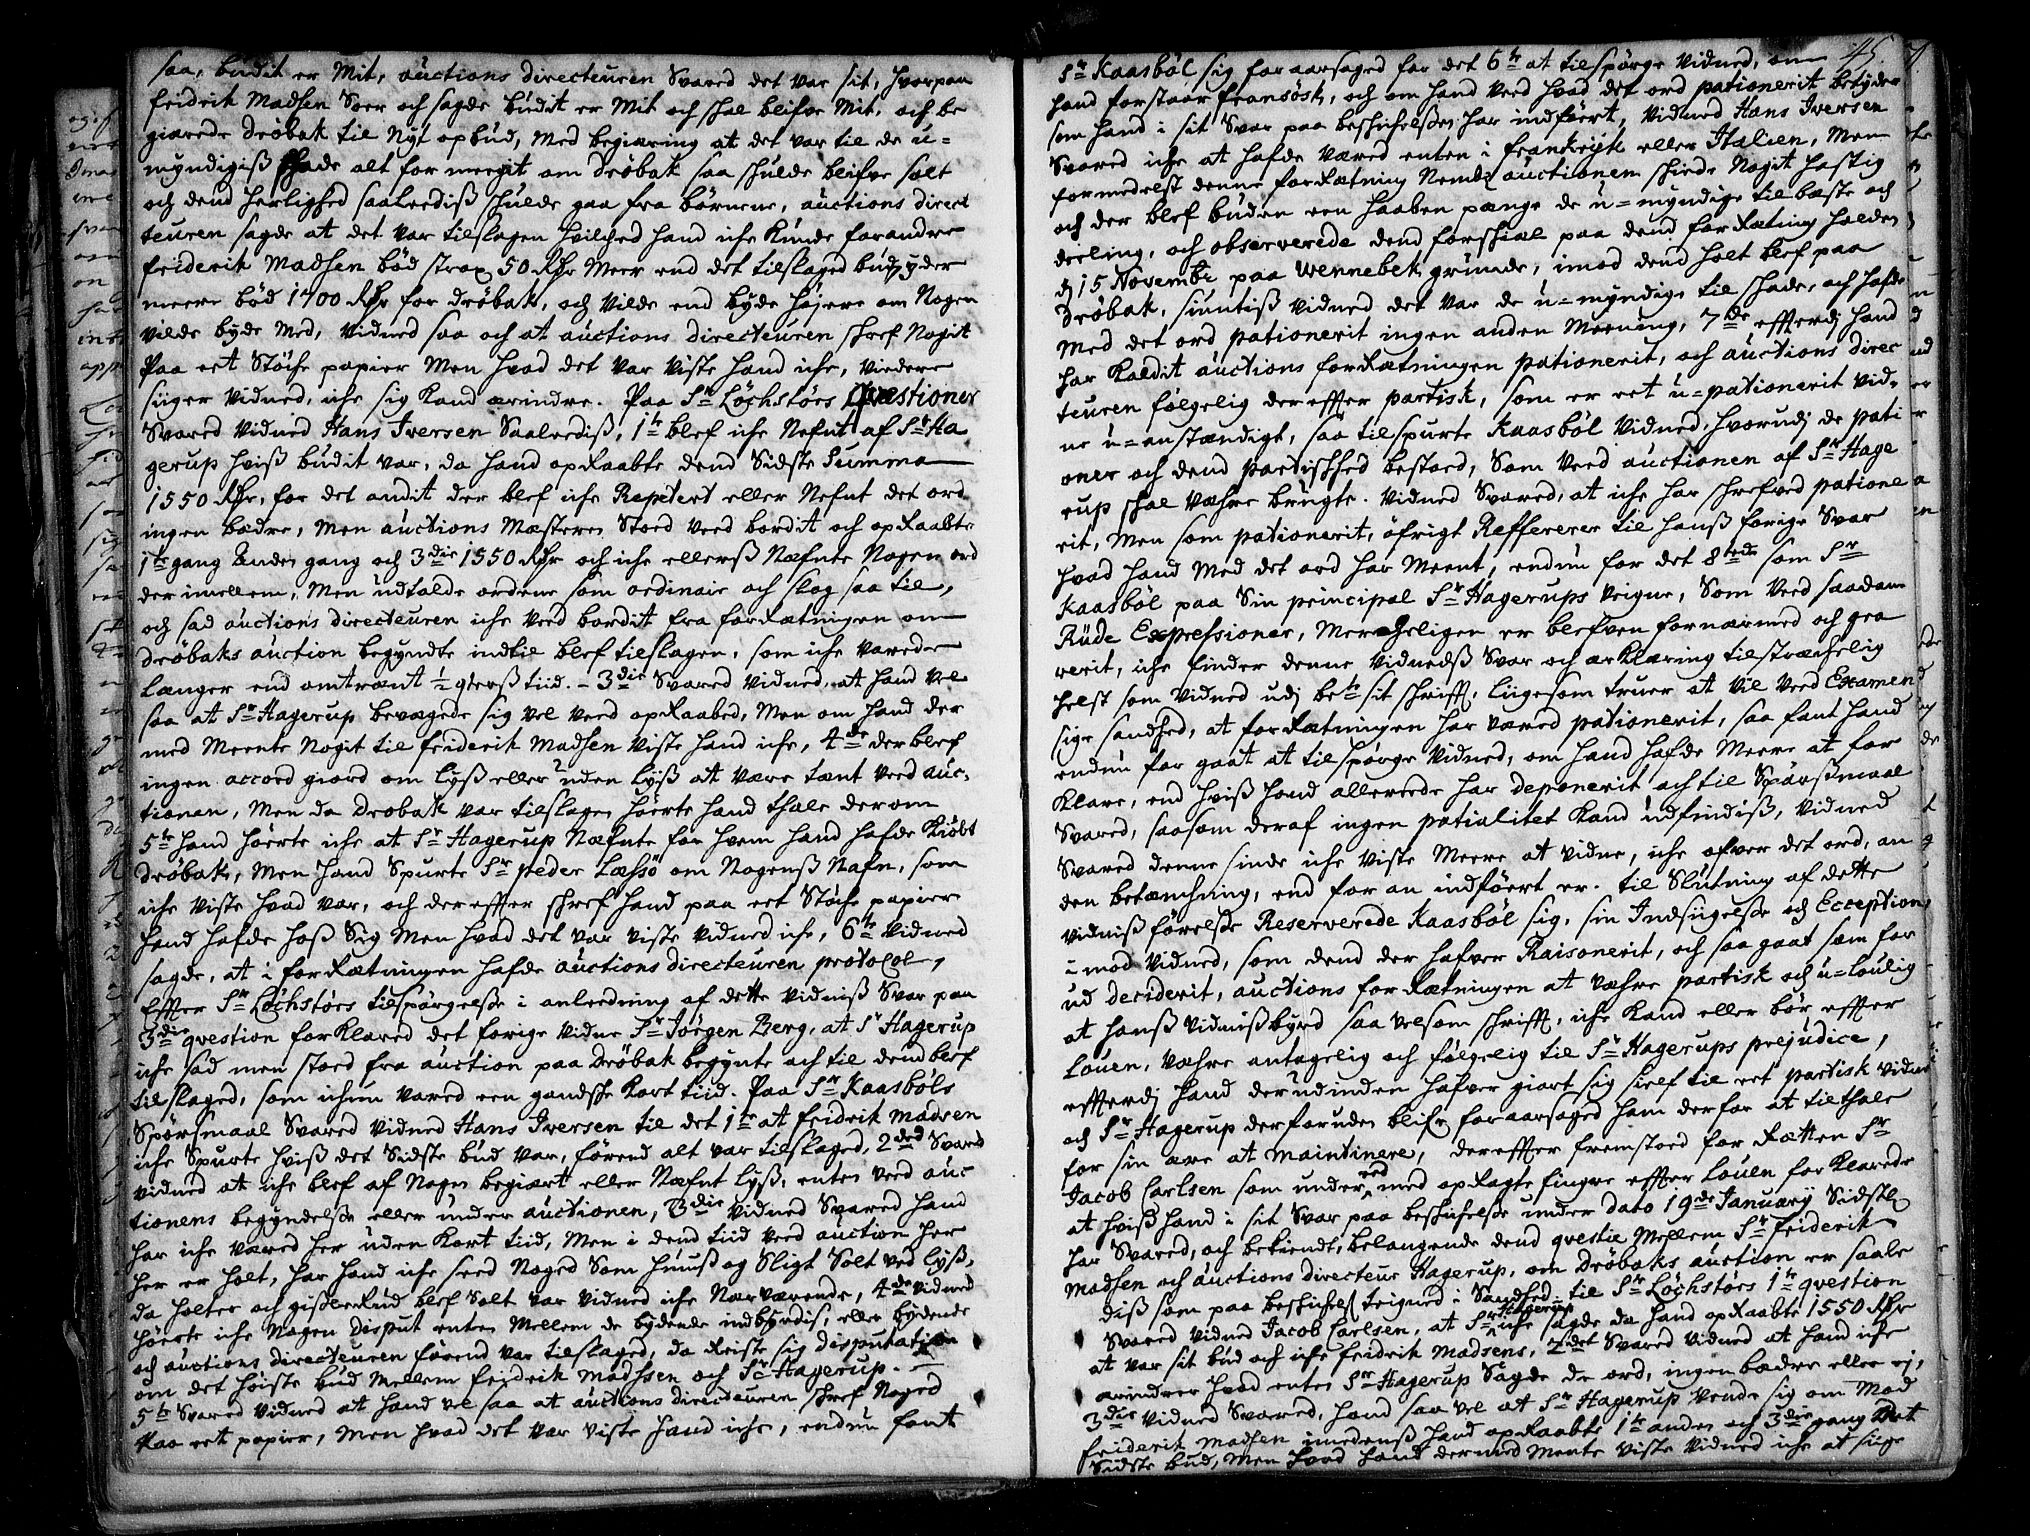 saa, budit er Mit, auctions directeuren Svared det var sit, hvorpaa
fridrik Madhsen Soer och sagde budit er Mit och skal blifve Mit, och be
giærede Drøbak til Nyt opbud, med begiæring at det var til de u=
myndigiß skade alt for meegit om Drøbak saa skulde blifve solt
och dend herlighed saaleediß skulde gaa fra børnene, auctions direct
teuren sagde at det var tilslagen hvilched hand iche Kunde forandre
friderik Madhsen bød strax 50 Rdr Meer end det tilslaged bud, yder
meere bød 1700 Rdr for Drøbak, och vilde end byde høyere om Nogen
vilde byde Med, Vidned saa och at auctions directeuren skref Nogit
Paa eet Støche papier Men hvad det var Viste hand iche, Viedere
siiger Vidned, iche sig kand erindre. Paa Sr Løchstørs Qvæstioner
Svared Vidned Hans Iversen Saaleediß, 1te blef iche Nefnt af Sr Ha
gerup hviß budit var, da hand opRaabte dend Sidste Summa
1550 Rdr, for det andit der blef iche Repetert eller Nefnt det ord
ingen bædre, Men auctions Mæsteren Stoed Veed bordit och opRaabte
1te gang Anden gang och 3die 1550 Rdr och iche ellerß Næfnte Nogen ord
der imellem, Men udtalde ordene som ordinair och slog saa til,
och sad auctions directeuren iche Veed bordit fra forRætningen om
Drøbaks auction begyndte indtil blef tilslagen, som iche varede
længer end omtrænt ½ qterß tiid. - 3die Svared Vidned, at hand Vel
saa at Sr Hagerup bevægede sig vel veed opRaabed, Men om hand der
med Meente Nogit til friderik Madhsen Viste hand iche, 4de der blef
ingen accord giord om lyß eller uden lyß at være tænt Veed auc-
tionen, Men da Drobak var tilslagen hørte hand thale derom
5te hand hørte iche at Sr Hagerup Næfnte for hvem hand hafde Kiøbt
Drøbak, Men hand Spurte Sr peder Læhsø om Nogenß Nafn, som
iche Viste hvad var, och dereffter skref hand paa eet Støche papier
hand hafde hoß Sig Men hvad det var viste Vidned iche, 6te Vidned
sagde, at i forRætningen hafde auctions directeuren protocol,
Effter Sr Løchstørs tilspørgelse i anleedning af dette Vidniß Svar paa
3die qvestion forKlared det forige Vidne Sr Jørgen Berg, at Sr Hagerup
iche sad men stoed fra auction paa Drøbak begynte och til dend blef
tilslaged, som ichun vared een gandske Kort tiid. Paa Sr Kaasbøls
Spørsmaal Svared Vidned Hans Iversen til det 1te at fridrik Madsen
iche Spurte hviß det Sidste bud var, førend alt var tilslaged, 2ded Svared
Vidned at iche blef af Nogen begiært eller Næfnt lyß, enten veed auc
tionens begyndelse eller under auctionen, 3die Vidned Svared hand
har iche væred her uden Kort tiid, Men i dend tiid Veed auction her
her er holt, har hand iche seed Noged Som huuß og Sligt Solt ved lyß,
da holter och gislerRud blef Solt var Vidned iche Nærværende, 4de Vidned
hørte iche Nogen Disput enten Mellem de bydende indbyrdis, eller bydende
och auctions directeuren førend var tilslaged, da Reiste sig disputation
om det høiste bud Mellem fridrik Madhsen och Sr Hagerup.
5te Svared Vidned at hand vel saa at auctions directeuren skref Noged
Paa eet papier, Men hvad det var Viste hand iche, endnu fant
45
Sr Kaasbøl sig foraarsaged for det 6te at tilspørge Vidned, om
hand forstaar fransøsk, och om hand Veed hvad det ord pationerit betyder
som hand i sit Svar paa beskichelsen har indført, Vidned Hans Iversen
Svared iche at hafde Væred enten i frankrijk eller Italien, Men
formedelst denne forRætning Nembl auctionen skeede Noget hastig
och der blef buden een haaben pænge de u=myndige til bæste och
deeling, och observerede dend forskiæl paa dend forRætning holden
d 15 Novembr paa Wennebek grunde, imod dend holt blef paa
Drøbak, siuntiß Vidned det var de u=myndige til skade, och hafde
Med det ord pationerit ingen anden Meening, 7de effterdj hand
har Kaldit auctions forRætningen pationerit, och auctions direc
teuren følgelig dereffter partisk, som er eet u=pationerit Vid-
ne u=anstændigt, saa tilspurte Kaasbøl Vidned, hvorudj de pati
oner och dend partiskhed bestoed, Som Veed auctionen af Sr Hage
rup skal Væhre brugte. Vidned Svared, at iche har skrefved patione
rit, Men som pationerit, øfrigt Reffererer til hanß forige Svar
hvad hand Med det ord har Meent, endnu for det 8tende som Sr
Kaasbøl paa Sin principal Sr Hagerups Veigne, Som Veed saadan
Rude Expressioner, Mercheligen er blefven fornærmed och gra
verit, iche finder denne Vidnedß Svar och erKlæring tilstræchelig
helst som Vidned udj bete sit skrifft, liigesom truer at Vil Veed Examen
sige sandhed, at forRætningen har Væred pationerit, saa fant hand
endnu for gaat at tilspørge Vidned, om hand hafde Meere at for
Klare, end hviß hand allereede har deponerit och til Spørßmaal
Svared, saasom deraf ingen patialitet Kand udfindiß, Vidned
Svared denne sinde iche Viste Meere at vidne, iche ofver det ord, an
den betænchning, end foran indført er. til Slutning af dette
Vidniß førelse Reserverede Kaasbøl sig, sin Indsigelse och Ecception
imod Vidned, som dend der hafver Raisonerit, och saa gaat som for
ud deciderit, auctions forRætningen at Væhre partisk och u=loulig
at hanß Vidnißbyrd saa velsom skrifft, iche Kand eller bør effter
Louen, Væhre antagelig och følgelig til Sr Hagerups prejudice,
effterdj hand derudinden hafver giort sig sielf til eet partisk vidne
och Sr Hagerup derforuden blifr foraarsaged ham derfor at tilthale
for sin ære at maintinere, dereffter fremstoed for Rætten Sr
Jacob Carlsen som under eed med opRagte fingre effter Louen forKlarede
at hviß hand i sit Svar paa beskichelse under dato 19de January Sidstl
har Svared, och bekiendt, belangende dend qvestie Mellem Sr friderik
Madhsen och auctions directeur Hagerup, om Drøbaks auction er saale
diß som paa beskichelse teigned i Sandhed. til Sr Løchstørs 1te qvestion
Svared Vidned Jacob Carlsen, at Sr Hagerup iche sagde da hand opRaabte 1550 Rdr
at var sit bud och iche fridrik Madsens, 2det Svared Vidned at hand iche
erindrer hvad enten Sr Hagerup Sagde de ord, ingen bædre eller ej,
3die Vidned Svared, hand saa vel at Sr Hagerup Vende sig om Mod
friderik Madhsen imedenß hand opRaabte 1te anden och 3die gang Det
Sidste bud, Men hvad hand dermed Mente Viste Vidned iche at siige